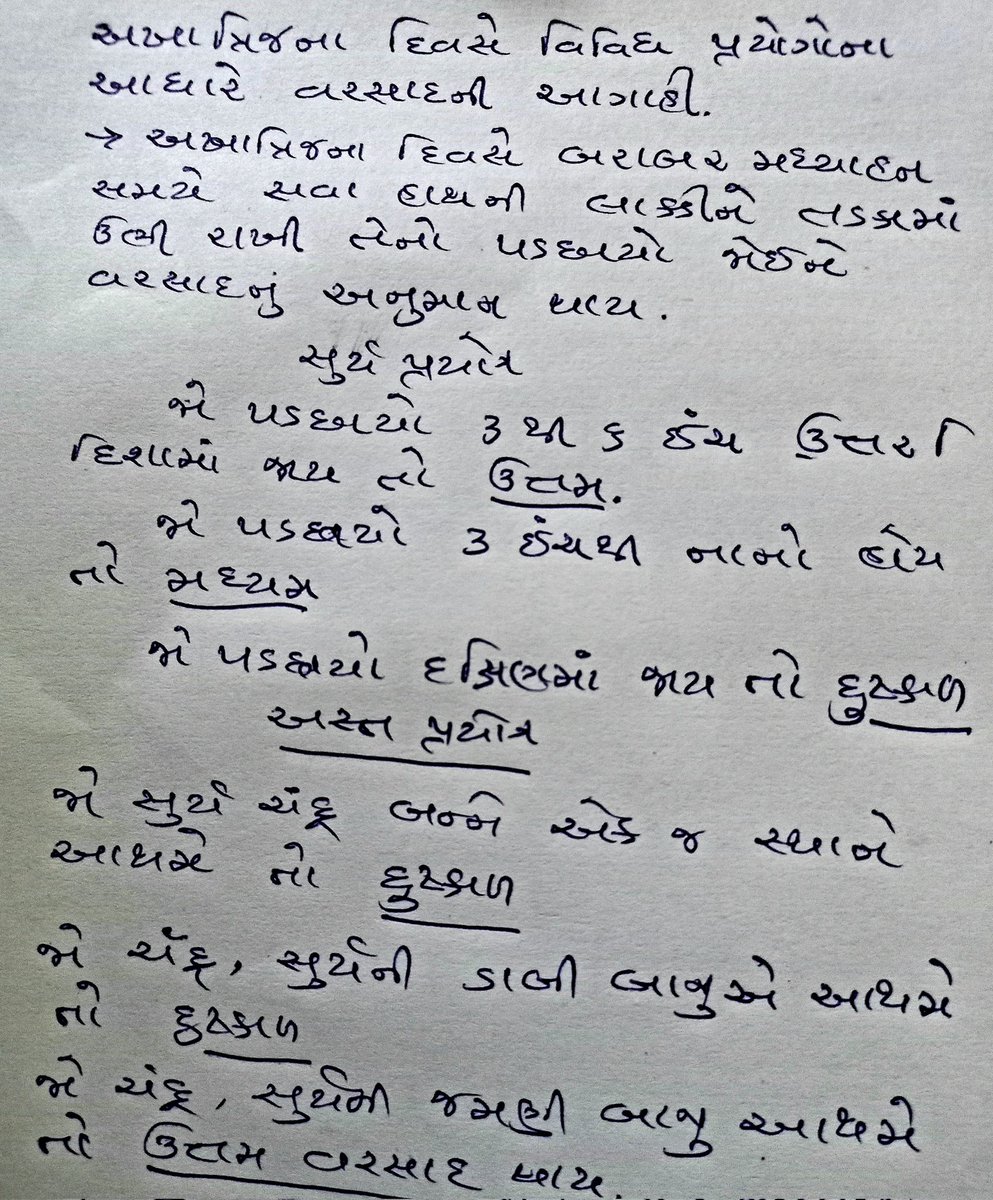 અખાત્રિજના દિવસે વિવિધ પ્રયોગોના
આધારે વરસાદની આગાહી.
→ અખાત્રિજના દિવસે બરાબર મધ્યાહન
સમયે સવા હાથની લાકડીને તડકામાં
ઉભી રાખી તેનો પડછાયો જોઈને
વરસાદનું અનુમાન થાય.
સુર્ય પ્રયોગ
જો પડછાયો ૩ થી ૬ ઈંચ ઉત્તર
દિશામાં જાય તો ઉત્તમ.
જો પડછાયો ૩ ઈંચથી નાનો હોય
તો મધ્યમ
જો પડછાયો દક્ષિણમાં જાય તો દુષ્કાળ
અસ્ત પ્રયોગ
જો સુર્ય ચંદ્ર બન્ને એક જ સ્થાને
આથમે તો દુષ્કાળ
જો ચંદ્ર, સુર્યની ડાબી બાજુએ આથમે
તો દુષ્કાળ
જો ચંદ્ર, સુર્યની જમણી બાજુ આથમે
તો ઉત્તમ વરસાદ થાય.